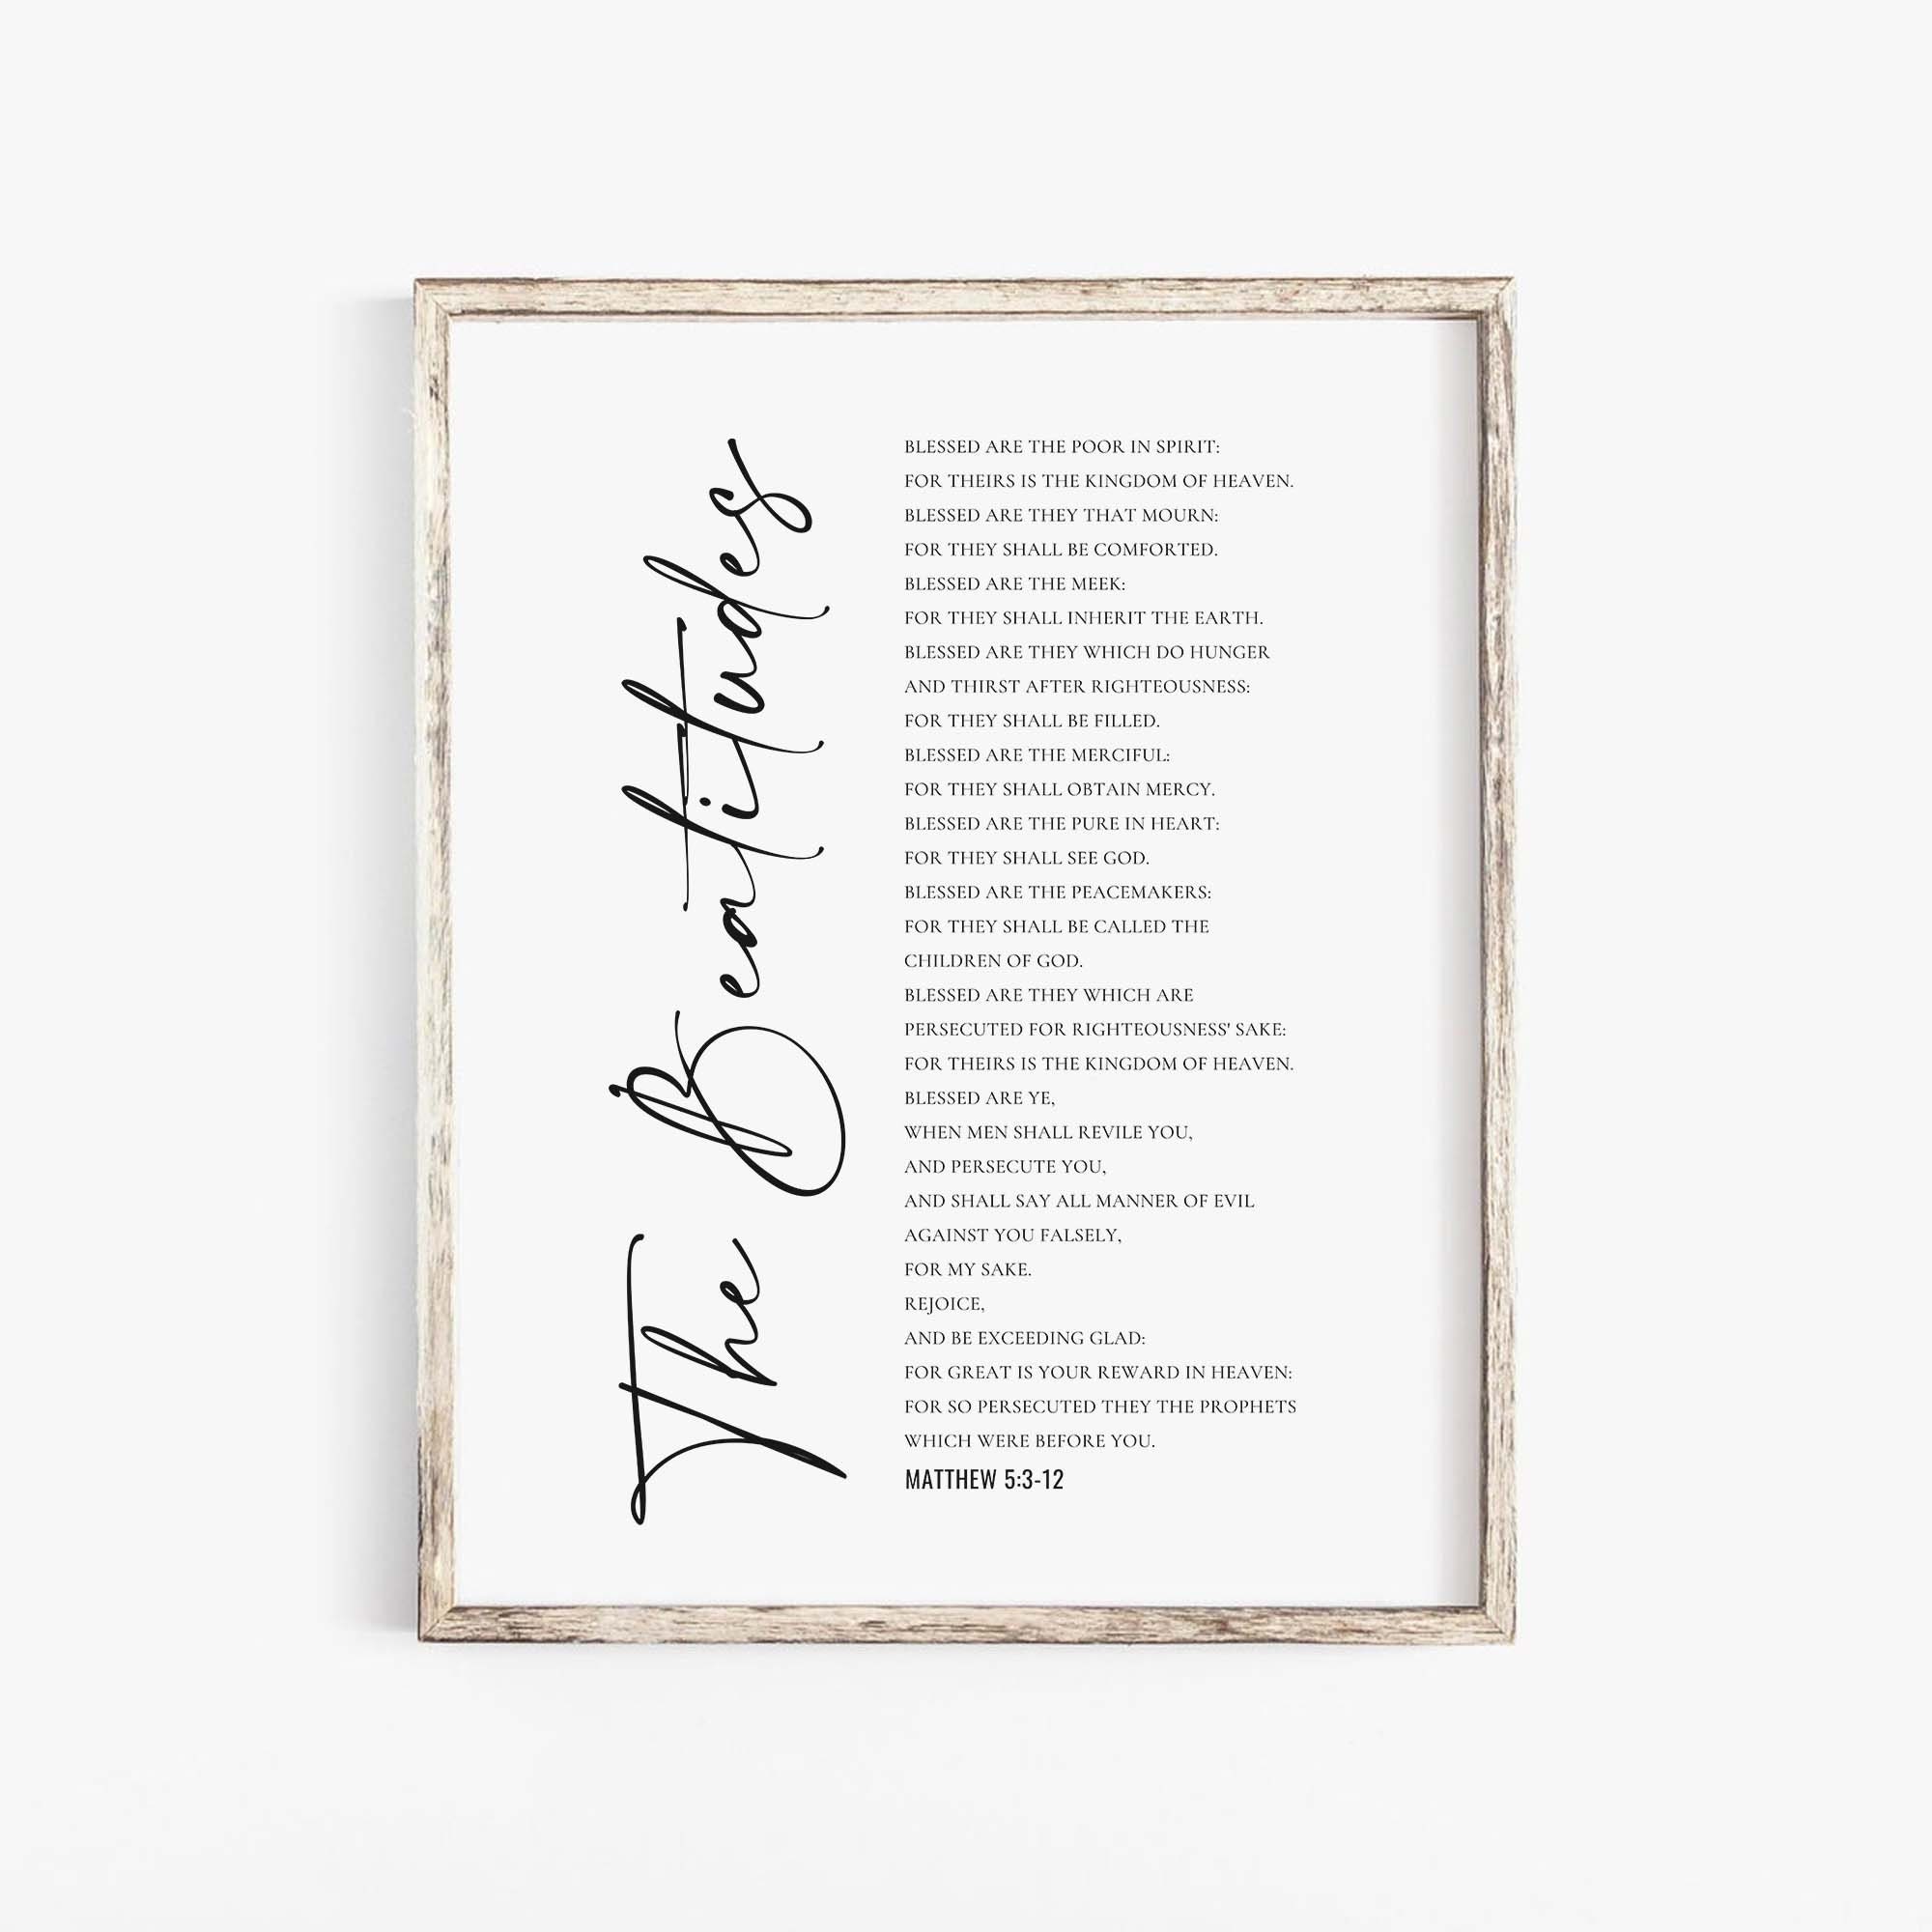 The Beatitudes
BLESSED ARE THE POOR IN SPIRIT:
FOR THEIRS IS THE KINGDOM OF HEAVEN.
BLESSED ARE THEY THAT MOURN:
FOR THEY SHALL BE COMFORTED.
BLESSED ARE THE MEEK:
FOR THEY SHALL INHERIT THE EARTH.
BLESSED ARE THEY WHICH DO HUNGER
AND THIRST AFTER RIGHTEOUSNESS:
FOR THEY SHALL BE FILLED.
BLESSED ARE THE MERCIFUL:
FOR THEY SHALL OBTAIN MERCY.
BLESSED ARE THE PURE IN HEART:
FOR THEY SHALL SEE GOD.
BLESSED ARE THE PEACEMAKERS:
FOR THEY SHALL BE CALLED THE
CHILDREN OF GOD.
BLESSED ARE THEY WHICH ARE
PERSECUTED FOR RIGHTEOUSNESS' SAKE:
FOR THEIRS IS THE KINGDOM OF HEAVEN.
BLESSED ARE YE,
WHEN MEN SHALL REVILE YOU,
AND PERSECUTE YOU,
AND SHALL SAY ALL MANNER OF EVIL
AGAINST YOU FALSELY,
FOR MY SAKE.
REJOICE,
AND BE EXCEEDING GLAD:
FOR GREAT IS YOUR REWARD IN HEAVEN:
FOR SO PERSECUTED THEY THE PROPHETS
WHICH WERE BEFORE YOU.
MATTHEW 5:3-12